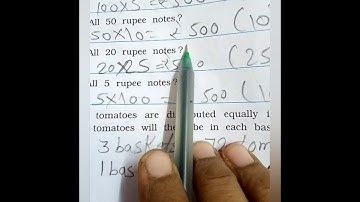 100x5 = 500
All 50 rupee notes?
50x10= ₹500 (10
All 20 rupee notes?
20x25=₹500 (25
All 5 rupee notes?
5x100= 500 (1
tomatoes are distributed equally i
tomatoes will the be in each bas
3 bask 72 tom
1 bas